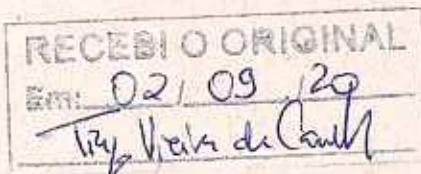 RECEBI O ORIGINAL
Em: 02 / 09 / 20
Vieira da